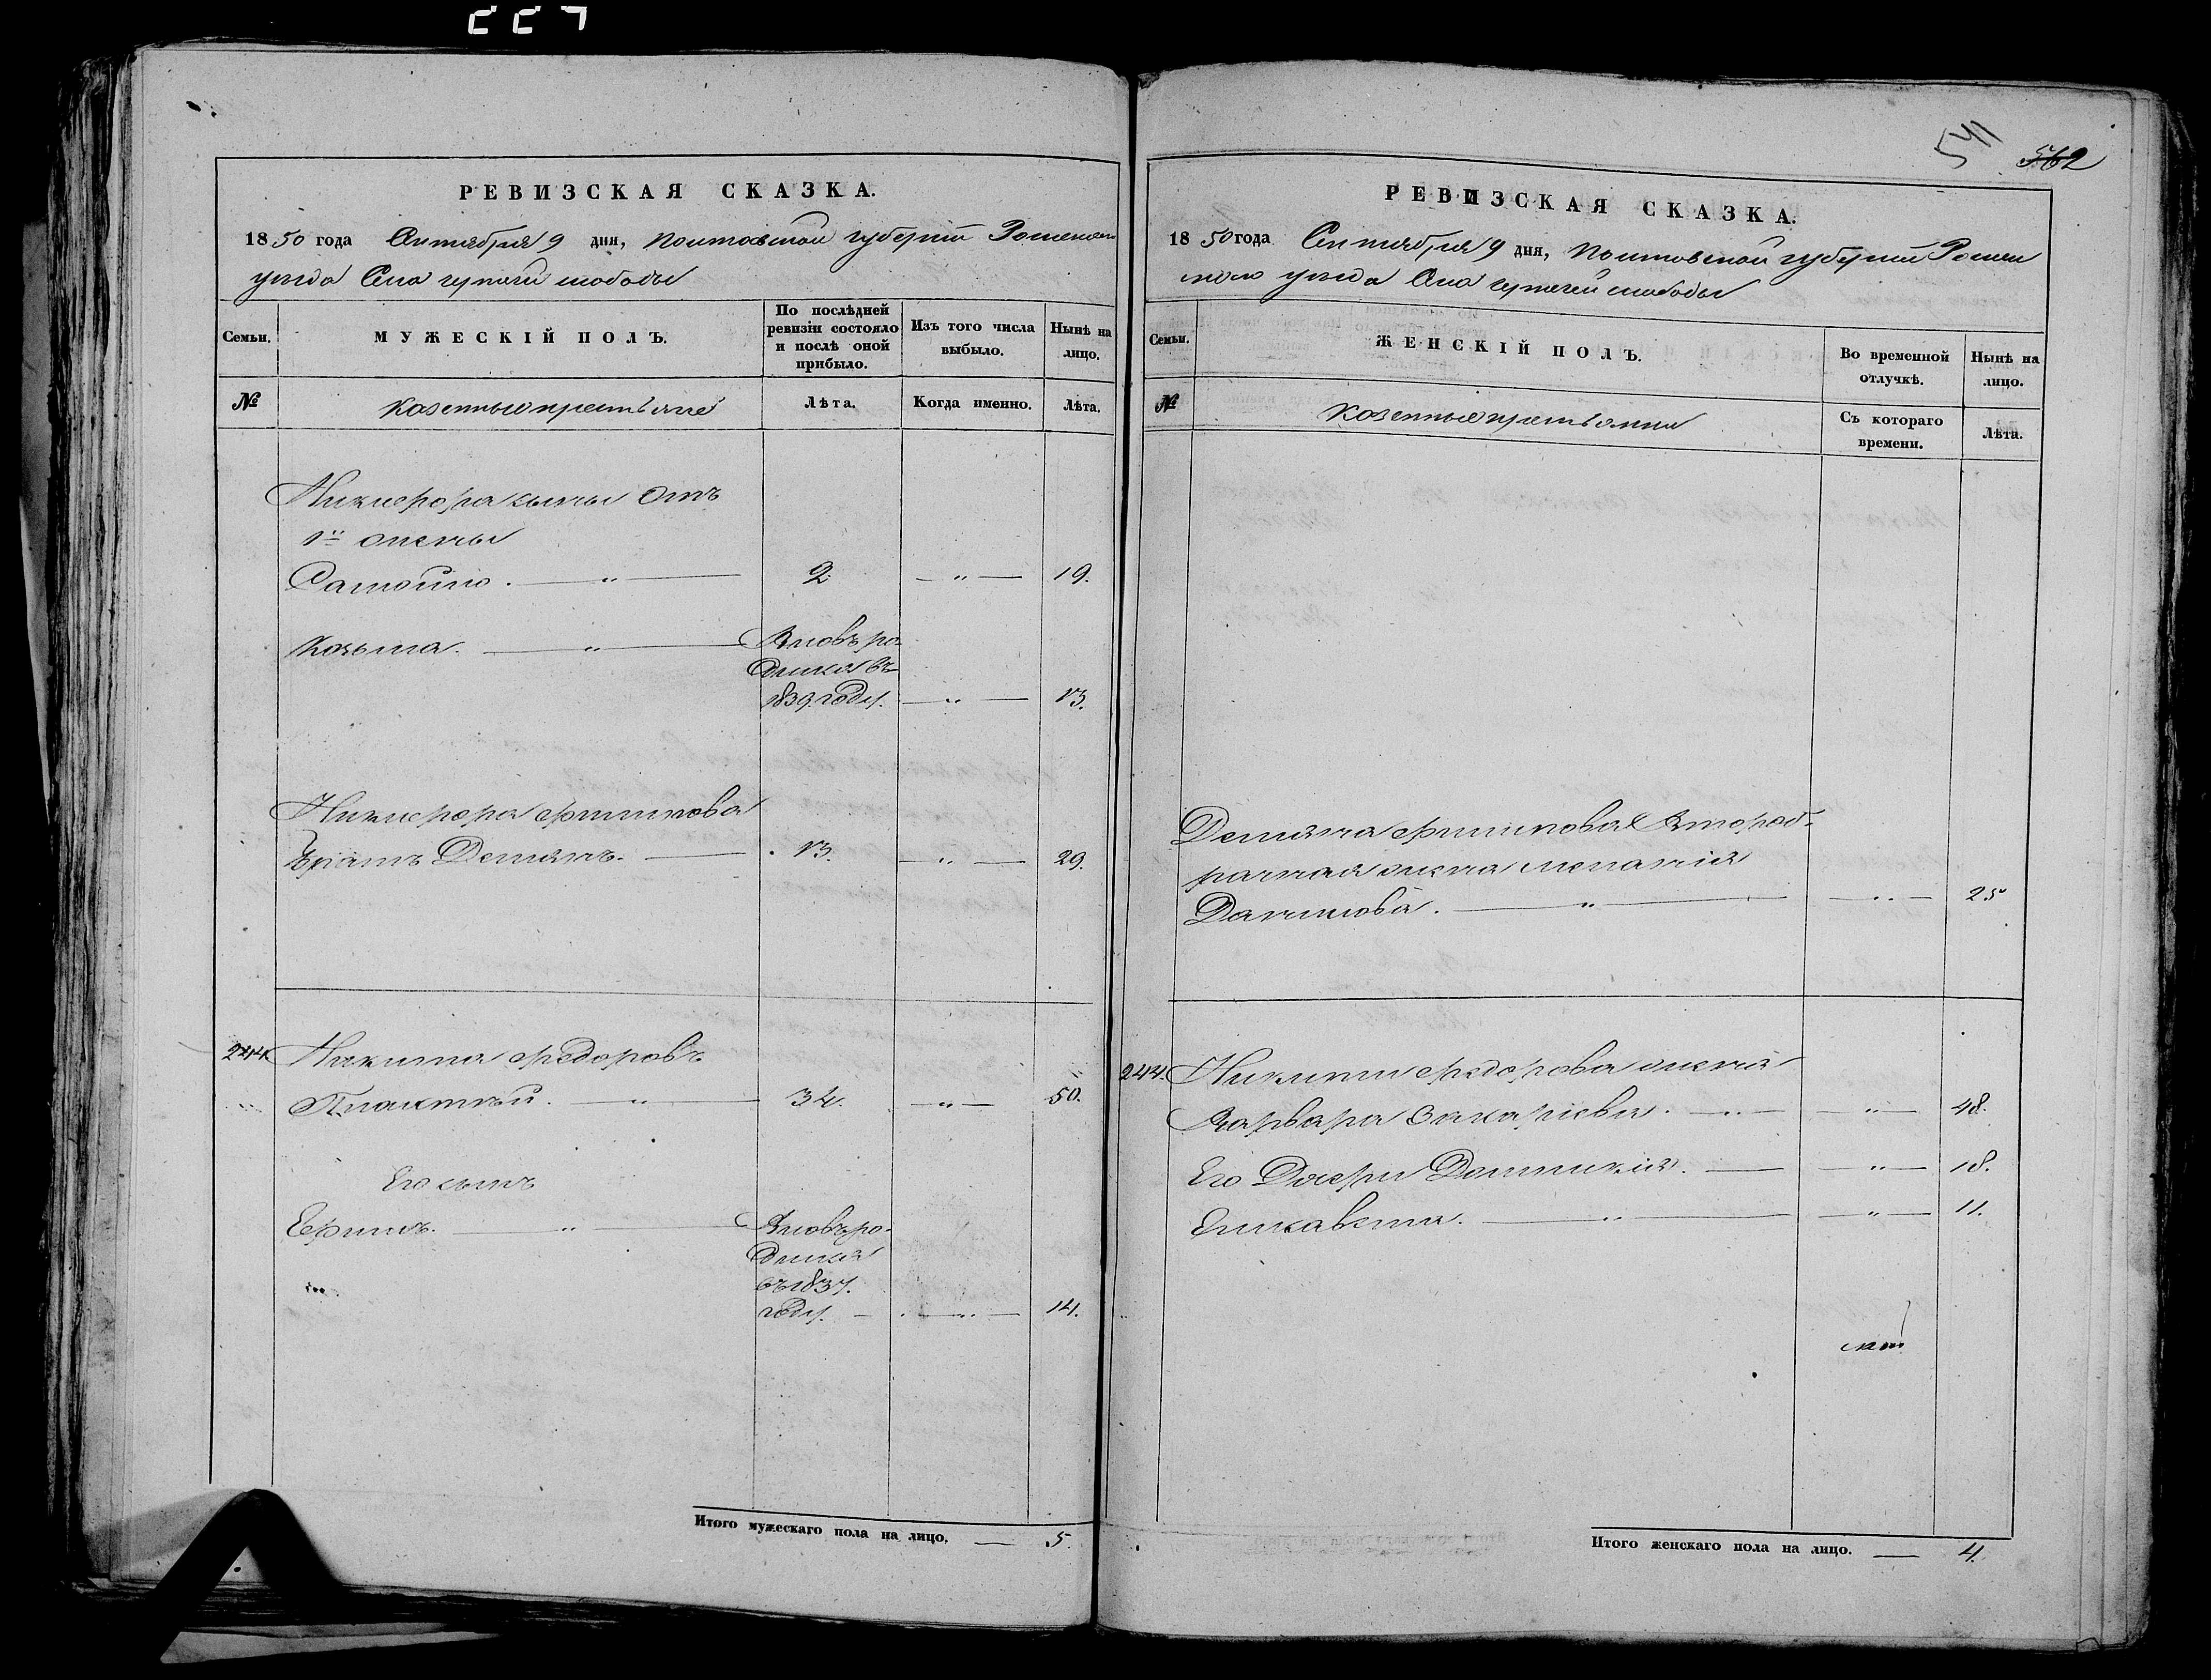 541
562
РЕВИЗСКАЯ СКАЗКА.
1850 года Сентября 9 дня, Полтавской губернии Роменскаго
уезда Села
слободы
Семьи.
МУЖЕСКІЙ ПОЛЪ.
По послѣдней
ревизіи состояло
и послѣ оной
прибыло.
Изъ того числа
выбыло.
Нынѣ на
лицо.
№
Казенные крестьяне
Лѣта.
Когда именно.
Лѣта.
Никифора сыны отъ
1й жены
Самойло. — " — 2 — " — 19.
Козьма. — " — Вновь ро-
дился въ
1839. году. — " — 13.
Никифора Филипова
братъ Демянъ. — 13. — " — 29.
244 Никита Федоровъ
34. — " — 50.
Его сынъ
Ефимъ. — " — Вновь ро-
дился
въ 1837.
году. — " — 14.
Итого мужескаго пола на лицо. — 5.
РЕВИЗСКАЯ СКАЗКА.
1850 года Сентября 9 дня, Полтавской губернии Ромен
скаго уезда Села слободы
Семьи.
ЖЕНСКІЙ ПОЛЪ.
Во временной
отлучкѣ.
Нынѣ на
лицо.
№
Казенные крестьянки
Съ котораго
времени.
Лѣта.
Демяна Филипова Второб-
рачная жена Меланія
Данилова. — " — " — 25
244. Никиты Федорова жена
Варвара Захаріева. — " — " — 48.
Его Дочери Домникія. — " — 18.
Елисавета. — " — " — 11.
Итого женскаго пола на лицо. — 4.